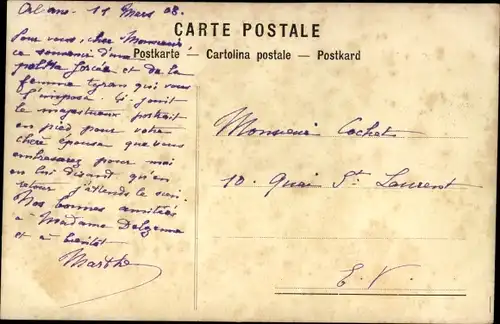 11 Mars 08.
CARTE POSTALE
Postkarte — Cartolina postale — Postkard
Pour vous, cher Monsieur
ce souvenir d'une
forcée et de la
femme tyran qui vous
l'impose. Ci joint
le majestueux portrait
en pied pour votre
chère épouse que vous
embrasserez pour moi
en lui disant qu'en
retour j'attends le sien.
Nos bonnes amitiés
à Madame
et à bientôt
Marthe
Monsieur Cochet
10. Quai St. Laurent
E. V.